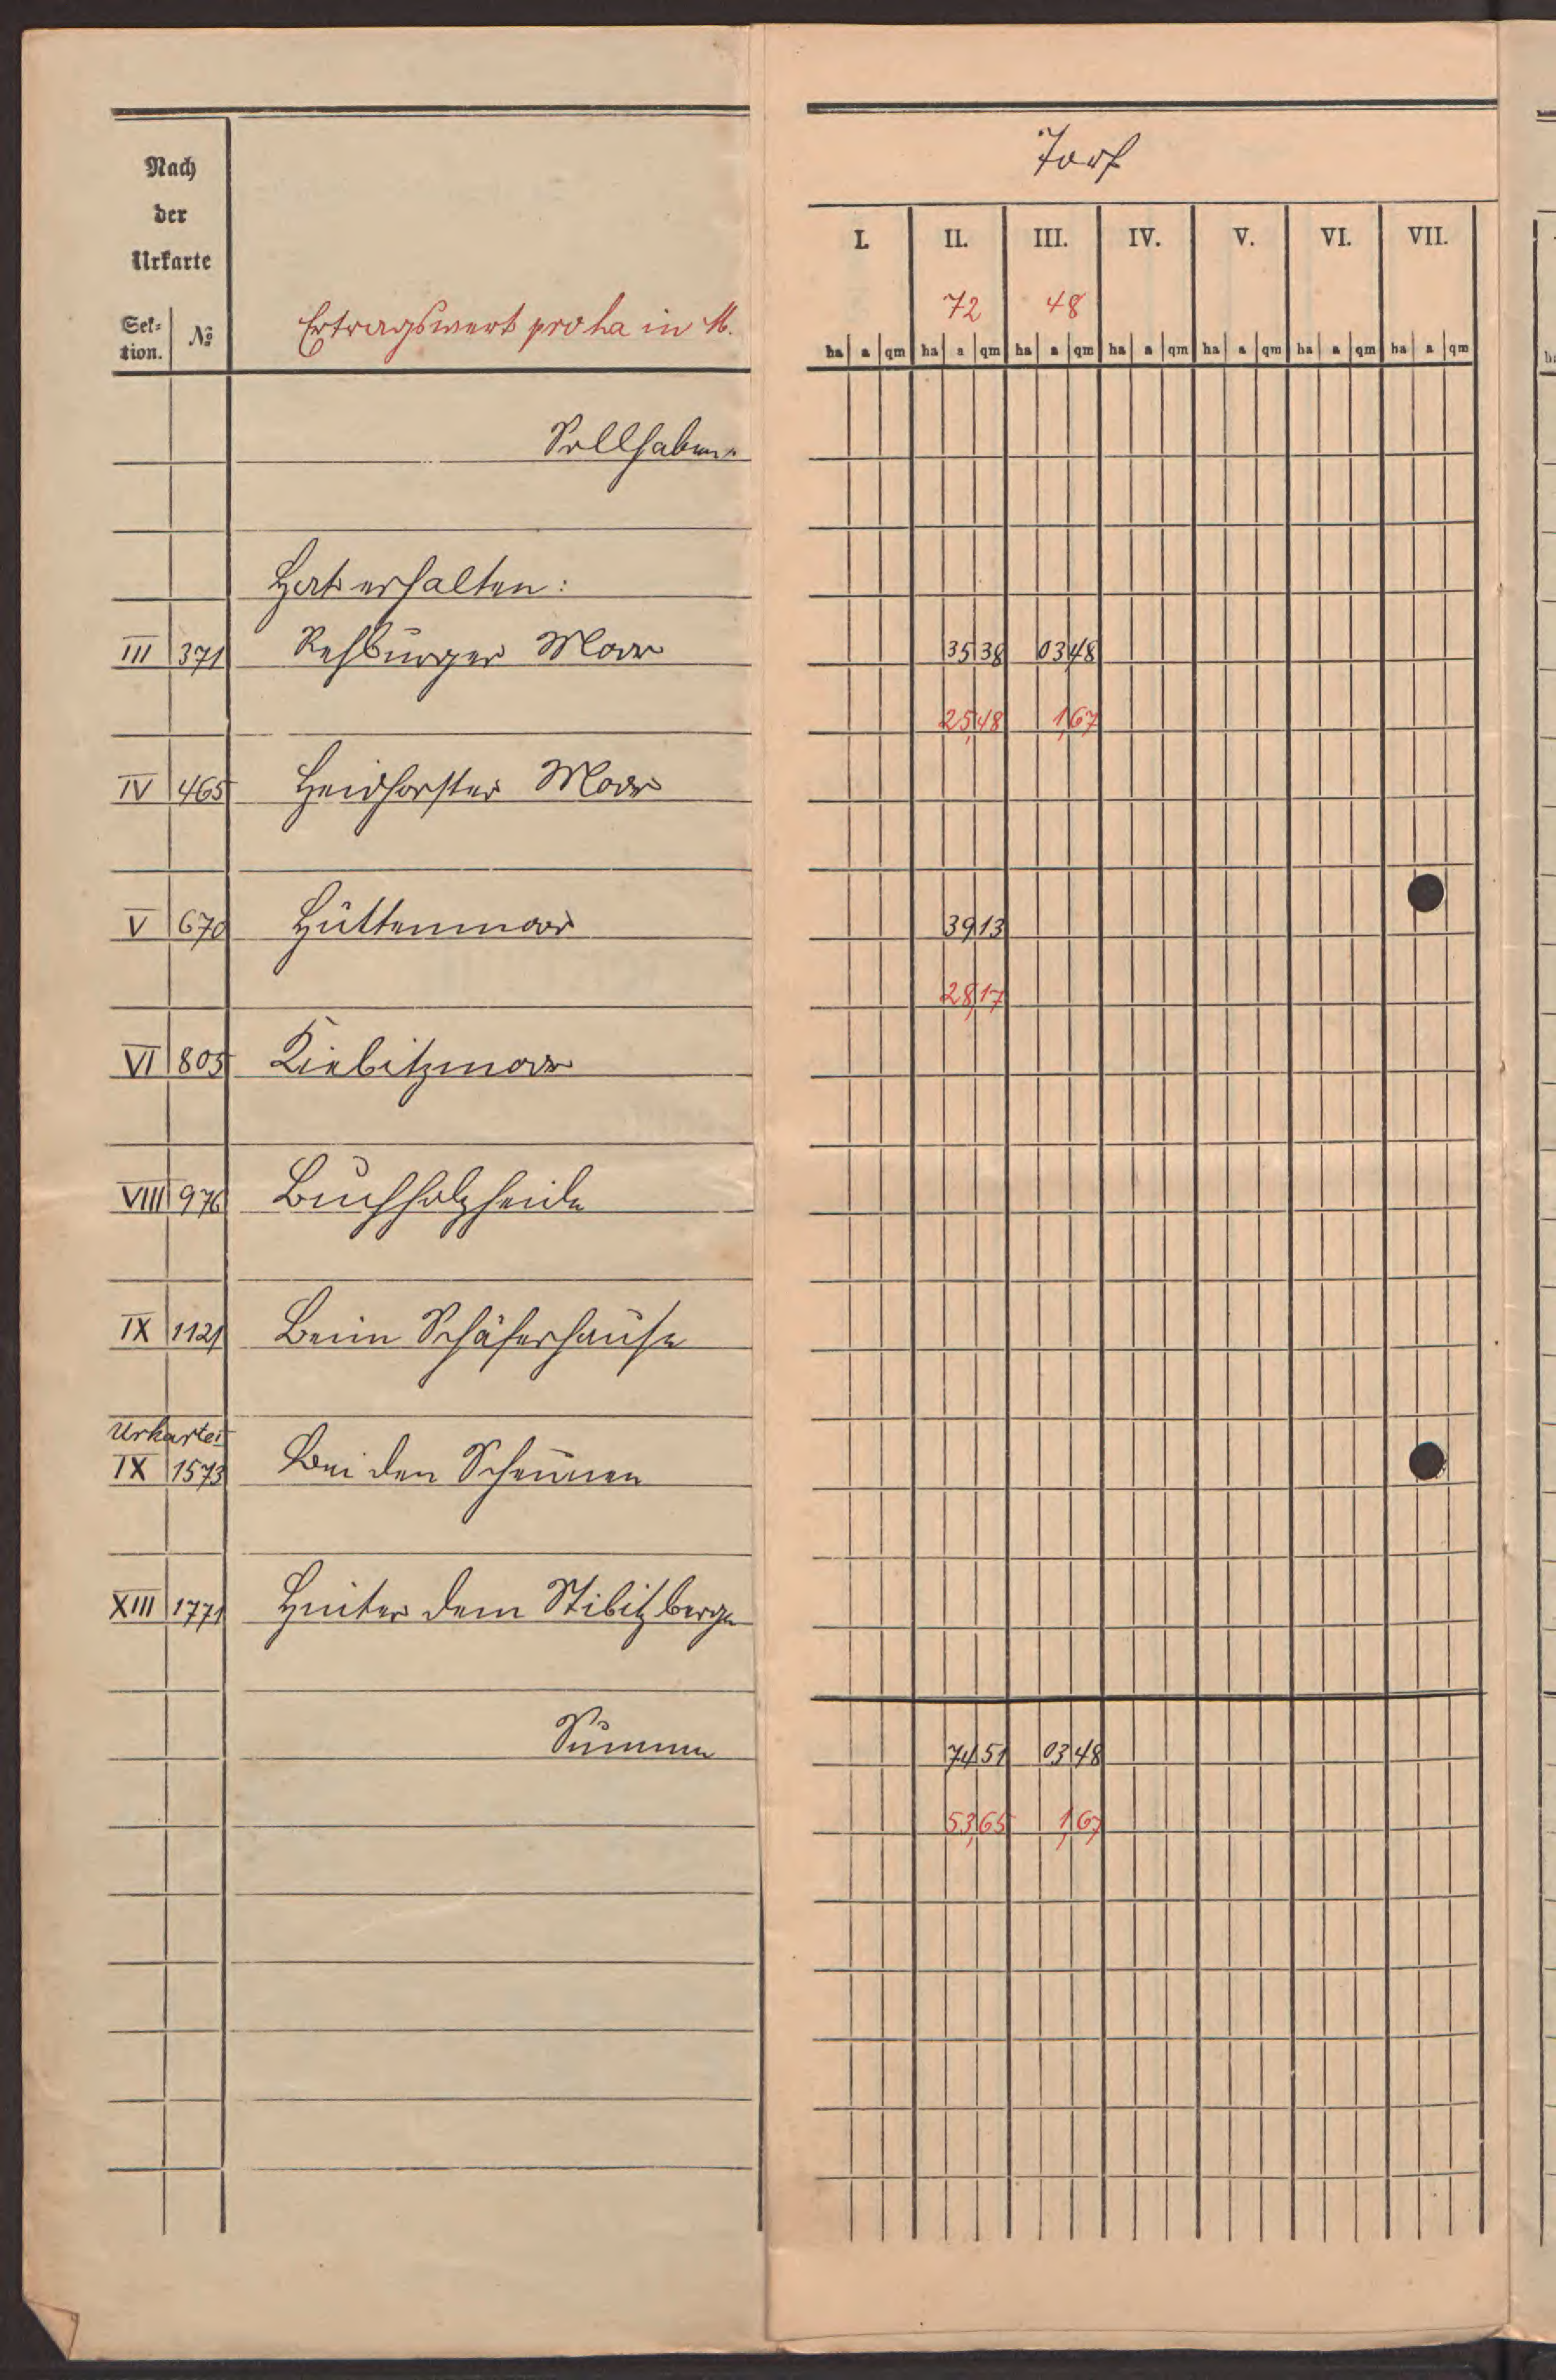 Nach
der
Urkarte
Sek-
tion.
№
Ertragswert pro ha in M.
Torf
I. II. III. IV. V. VI. VII.
72 48
ha a qm ha a qm ha a qm ha a qm ha a qm ha a qm ha a qm
Sollhaben
Hat erhalten:
III 371 Rehburger Moor 35 38 03 48
25,48 1,67
IV 465 Heidhorster Moor
V 670 Hüttenmoor 39 13
28,17
VI 805 Kiebitzmoor
VIII 976 Buchholzheide
IX 1121 Beim Schäferhause
Urkarte
IX 1573 Bei den Scheunen
XIII 1771 Hinter dem Stibitzberge
Summe 74 51 03 48
53,65 1,67